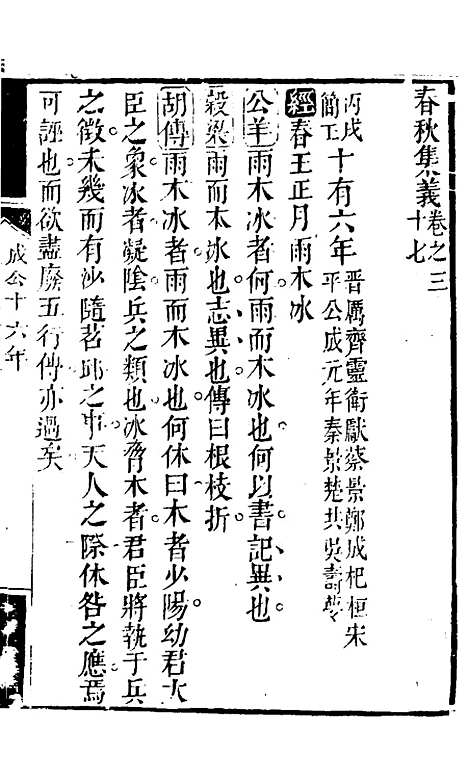 春秋集義卷之三十七
丙戌簡王十有六年晉厲齊靈衛獻蔡景鄭成杞桓宋平公成元年秦景楚共吳壽夢
經春王正月雨木冰
公羊雨木冰者何雨而木冰也何以書記異也
穀梁雨而木冰也志異也傳曰根枝折
胡傳雨木冰者雨而木冰也何休曰木者少陽幼君大
臣之象冰者凝陰兵之類也冰脅木者君臣將執于兵
之徵未幾而有沙隨苕邱之事天人之際休咎之應焉
可誣也而欲盡廢五行傳亦過矣
成公十六年